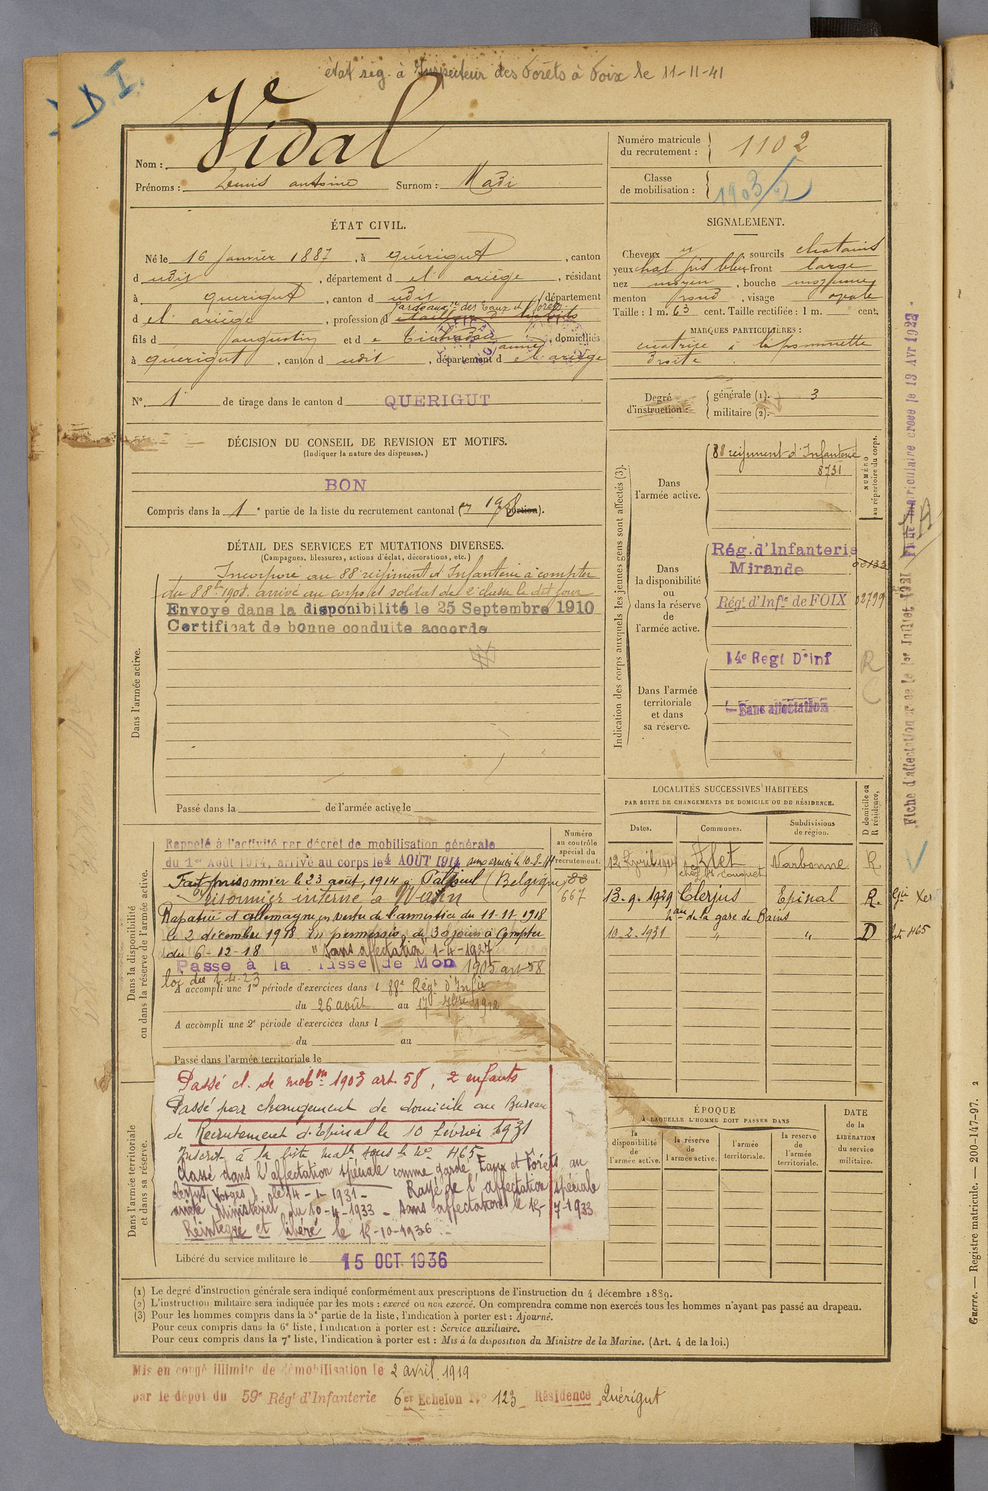 D. I.
état sig. à Inspecteur des Forêts à Foix le 11-11-41
Nom : Vidal
Prénoms : Louis antoine Surnom : Madi
Numéro matricule du recrutement : 1102
Classe de mobilisation : 1903/2
ÉTAT CIVIL.
Né le 16 janvier 1887, à quérigut, canton
d udit, département d el ariège, résidant
à querigut, canton d udit, département
d el ariège, profession d garde aux des Eaux et Forêts
fils d augustin et d e, domiciliés
à querigut, canton d udit, département d el ariège
N° 1 de tirage dans le canton d QUERIGUT
DÉCISION DU CONSEIL DE REVISION ET MOTIFS.
(Indiquer la nature des dispenses.)
BON
Compris dans la 1e partie de la liste du recrutement cantonal
DÉTAIL DES SERVICES ET MUTATIONS DIVERSES.
(Campagnes, blessures, actions d'éclat, décorations, etc.)
Incorporé au 88e régiment d'Infanterie à compter
du 8 8bre 1908. arrivé au corps et soldat de 2e classe le dit jour
Envoyé dans la disponibilité le 25 Septembre 1910
Certificat de bonne conduite accordé
Dans l'armée active.
Passé dans la de l'armée active le
SIGNALEMENT.
Cheveux, sourcils chatains
yeux, front large
nez moyen, bouche moyenne
menton rond, visage ovale
Taille : 1 m. 63 cent. Taille rectifiée : 1 m. cent.
MARQUES PARTICULIÈRES :
cicatrice à la pommette
droite
Degré d'instruction : générale (1). 3
militaire (2).
Indication des corps auxquels les jeunes gens sont affectés (3).
NUMÉRO au répertoire du corps.
Dans l'armée active.
88 régiment d'Infanterie
8731
Dans la disponibilité ou dans la réserve de l'armée active.
Rég. d'Infanterie
Mirande
Régt d'Infie de FOIX 02799
Dans l'armée territoriale et dans sa réserve.
14e Regt D'Inf
R
C
Sans affectation
LOCALITÉS SUCCESSIVES HABITÉES
PAR SUITE DE CHANGEMENTS DE DOMICILE OU DE RÉSIDENCE.
Dates. Communes. Subdivisions de région. D domicile ou R résidence.
Alet Narbonne R
13.9.1929 Clerjus Epinal R.
de la gare de Bains
10.2.1931 " " D
Dans la disponibilité ou dans la réserve de l'armée active.
Numéro au contrôle spécial du recrutement.
667
Rappelé à l'activité par décret de mobilisation générale
du 1er Août 1914, arrivé au corps le 4 AOUT 1914
Fait prisonnier le 23 août 1914 à Paliseul (Belgique)
Prisonnier interné à
Rapatrié d'allemagne en vertu de l'armistice du 11-11-1918
le 2 décembre 1918 en permission de 30 jours à compter
du 6-12-18 "Sans affectation" 1-4-1927
Passé à la classe de Mon 1905 art 58
loi du 1-4-23
A accompli une 1re période d'exercices dans l 88e Régt d'Infie
du 26 août au 17 7bre 1912
A accompli une 2e période d'exercices dans l
du au
Passé dans l'armée territoriale le
Dans l'armée territoriale et dans sa réserve.
Passé cl. de mobon 1903 art. 58, 2 enfants
Passé par changement de domicile au Bureau
de Recrutement d'Epinal le 10 février 1931
Inscrit à la liste matle sous le no 465
Classé dans l'affectation spéciale comme garde Eaux et Forêts au
Clerjus, Vosges, le 14-1-1931 - Rayé de l'affectation spéciale
Ministériel du 10-4-1933 - Sans affectation le 15-7-1933
Réintégré et libéré le 15-10-1936.-
Libéré du service militaire le 15 OCT. 1936
ÉPOQUE
À LAQUELLE L'HOMME DOIT PASSER DANS
la disponibilité de l'armée active.
la réserve de l'armée active.
l'armée territoriale.
la réserve de l'armée territoriale.
DATE de la LIBÉRATION du service militaire.
(1) Le degré d'instruction générale sera indiqué conformément aux prescriptions de l'instruction du 4 décembre 1889.
(2) L'instruction militaire sera indiquée par les mots : exercé ou non exercé. On comprendra comme non exercés tous les hommes n'ayant pas passé au drapeau.
(3) Pour les hommes compris dans la 5e partie de la liste, l'indication à porter est : Ajourné.
Pour ceux compris dans la 6e liste, l'indication à porter est : Service auxiliaire.
Pour ceux compris dans la 7e liste, l'indication à porter est : Mis à la disposition du Ministre de la Marine. (Art. 4 de la loi.)
Mis en congé illimité de démobilisation le 2 avril 1919
par le dépôt du 59e Régt d'Infanterie 6e Echelon No 123 Résidence Quérigut
Guerre. — Registre matricule. — 200-147-97. 2